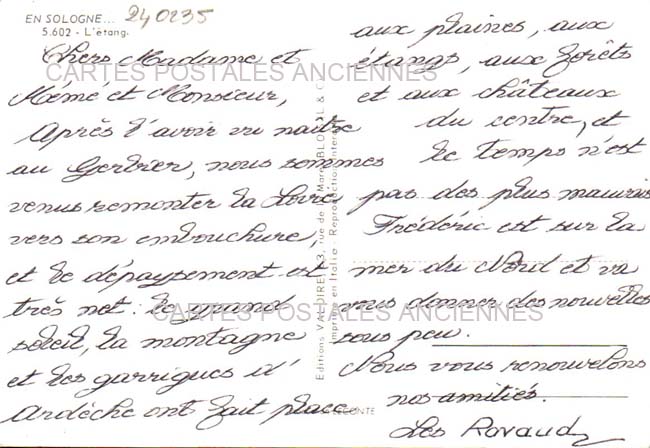 EN SOLOGNE...
5.602 - L'étang.
240235
Chers Madame et
Mémé et Monsieur,
Après l'avoir vu naître
au Gerbier, nous sommes
venus remonter la Loire
vers son embouchure,
et le dépaysement est
très net : le grand
soleil, la montagne
et les garrigues d'
Ardèche ont fait place
aux plaines, aux
étangs, aux forêts
et aux châteaux
du centre, et
le temps n'est
pas des plus mauvais
Frédéric est sur la
mer du Nord et va
vous donner des nouvelles
sous peu.
Nous vous renouvelons
nos amitiés.
Les Ravaud
CARTES POSTALES ANCIENNES
CARTES POSTALES ANCIENNES
Imprimé en Italie - Reproduction